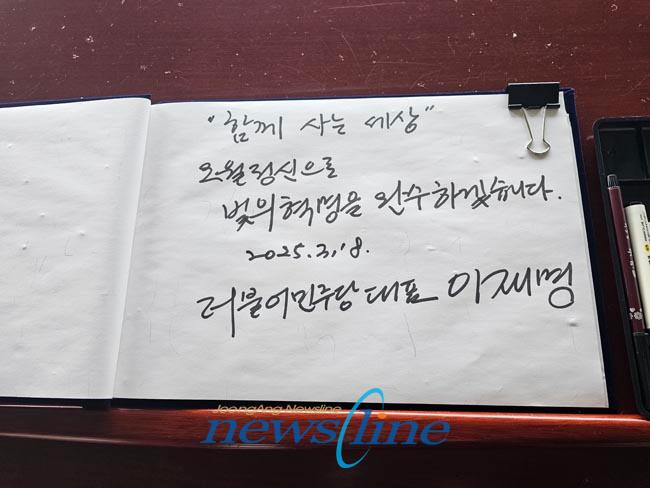 "함께 사는 세상"
오월정신으로
빛의 혁명을 완수하겠습니다.
2025.3.18.
더불어민주당 대표 이재명
JoongAng Newsline
newsline